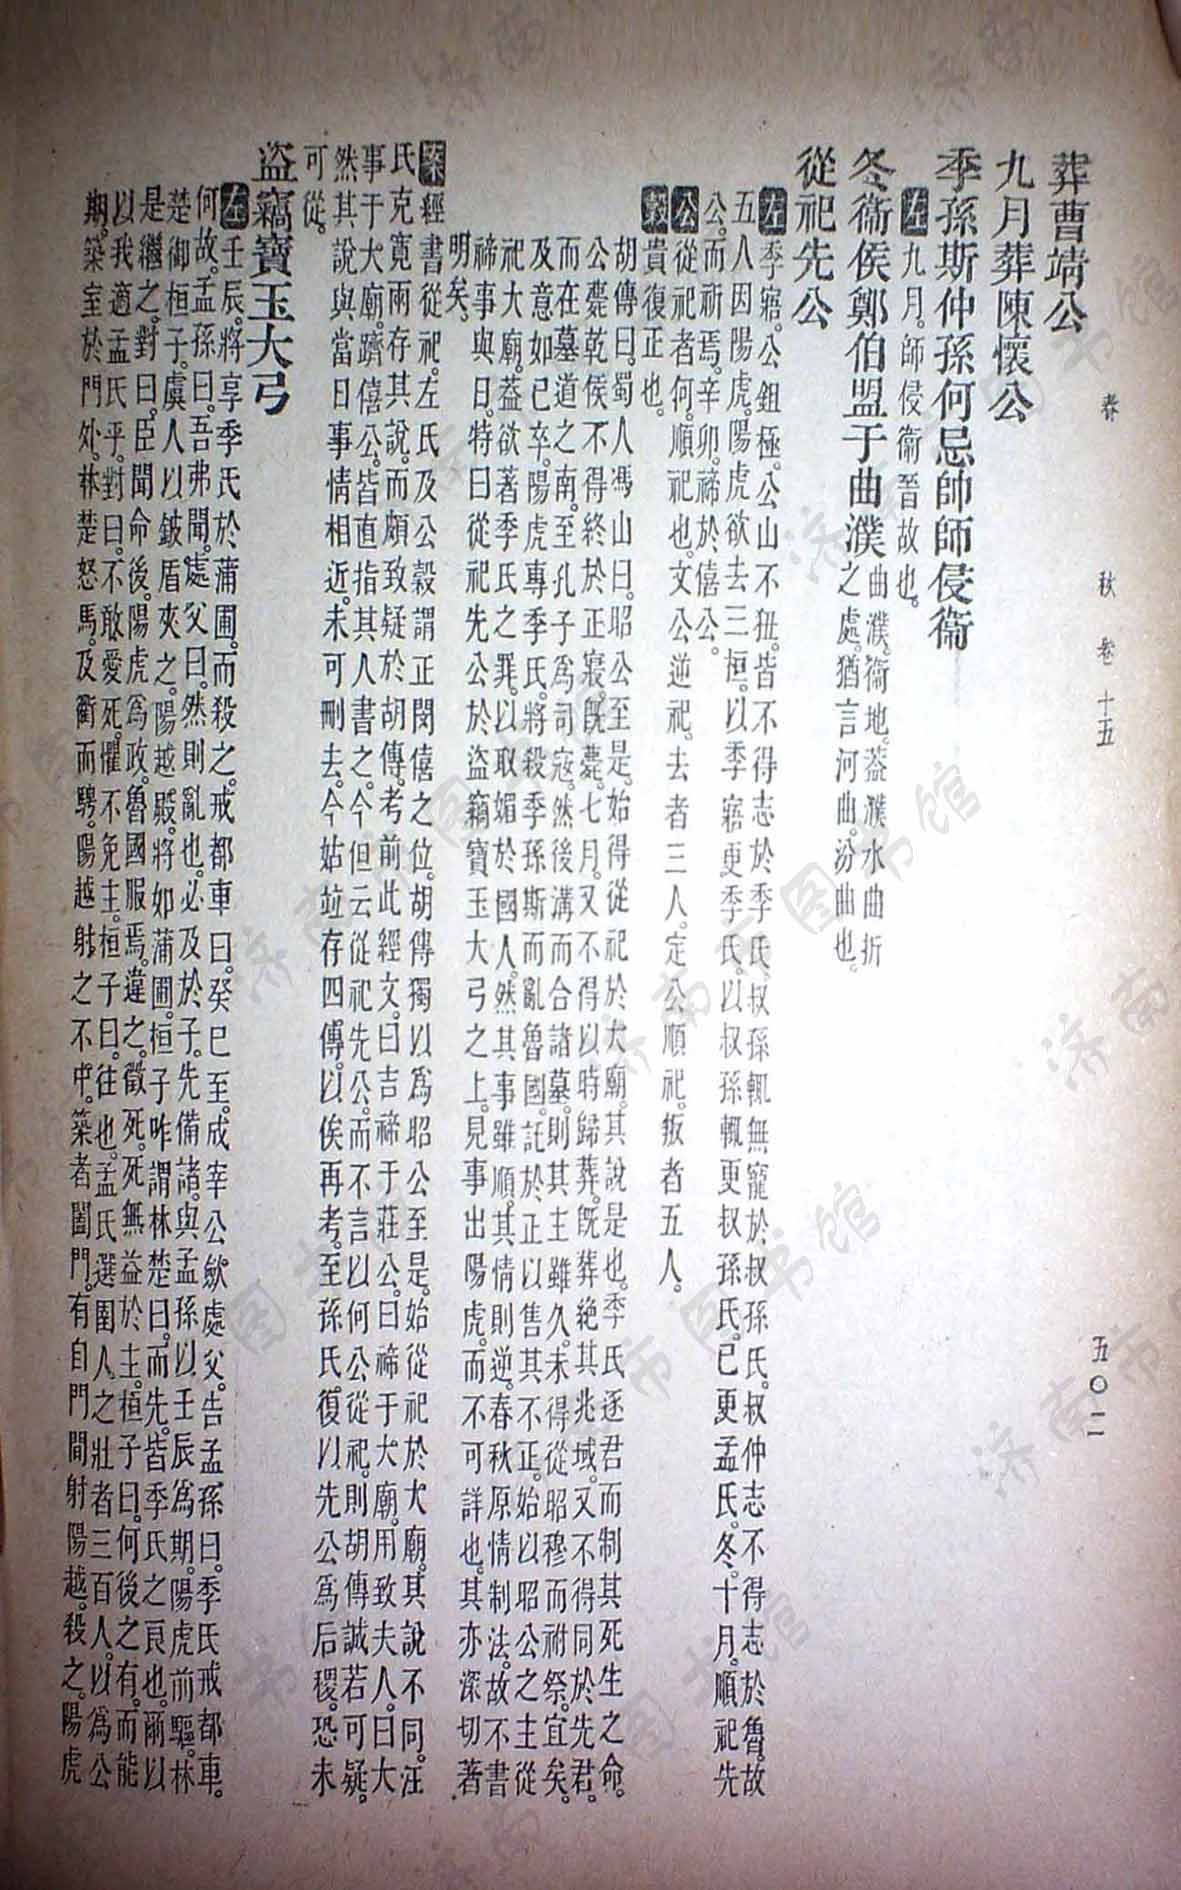 春秋卷十五
五〇二
葬曹靖公
九月葬陳懷公
季孫斯仲孫何忌帥師侵衞
左九月。師侵衞晉故也。
冬衞侯鄭伯盟于曲濮曲濮。衞地。蓋濮水曲折
之處。猶言河曲。汾曲也。
從祀先公
左季寤。公鉏極。公山不狃。皆不得志於季氏。叔孫輒無寵於叔孫氏。叔仲志不得志於魯。故
五人因陽虎。陽虎欲去三桓。以季寤更季氏。以叔孫輒更叔孫氏。已更孟氏。冬。十月。順祀先
公。而祈焉。辛卯。禘於僖公。
公從祀者何。順祀也。文公逆祀。去者三人。定公順祀。叛者五人。
穀貴復正也。
胡傳曰。蜀人馮山曰。昭公至是。始得從祀於大廟。其說是也。季氏逐君而制其死生之命。
公薨乾侯。不得終於正寢。旣薨。七月。又不得以時歸葬。旣葬。絕其兆域。又不得同於先君。
而在墓道之南。至孔子爲司寇。然後溝而合諸墓。則其主雖久。未得從昭穆而祔祭。宜矣。
及意如已卒。陽虎專季氏。將殺季孫斯而亂魯國。託於正以售其不正。始以昭公之主從
祀大廟。蓋欲著季氏之罪。以取媚於國人。然其事雖順。其情則逆。春秋原情制法。故不書
禘事與日。特曰從祀先公於盜竊寶玉大弓之上。見事出陽虎。而不可詳也。其亦深切著
明矣。
案經書從祀。左氏及公穀謂正閔僖之位。胡傳獨以爲昭公至是。始從祀於大廟。其說不同。汪
氏克寬兩存其說。而頗致疑於胡傳。考前此經文。曰吉禘于莊公。曰禘于大廟。用致夫人。曰大
事于大廟。躋僖公。皆直指其人書之。今但云從祀先公。而不言以何公從祀。則胡傳誠若可疑。
然其說與當日事情相近。未可刪去。今姑竝存四傳。以俟再考。至孫氏復以先公爲后稷。恐未
可從。
盜竊寶玉大弓
左壬辰。將享季氏於蒲圃。而殺之。戒都車曰。癸巳至。成宰公斂處父。告孟孫曰。季氏戒都車。
何故。孟孫曰。吾弗聞。處父曰。然則亂也。必及於子。先備諸。與孟孫以壬辰爲期。陽虎前驅。林
楚御桓子。虞人以鈹盾夾之。陽越殿。將如蒲圃。桓子咋謂林楚曰。而先。皆季氏之良也。爾以
是繼之。對曰。臣聞命後。陽虎爲政。魯國服焉。違之。徵死。死無益於主。桓子曰。何後之有。而能
以我適孟氏乎。對曰。不敢愛死。懼不免主。桓子曰。往也。孟氏選圉人之壯者三百人。以爲公
期。築室於門外。林楚怒馬。及衢而騁。陽越射之不中。築者闔門。有自門間射陽越。殺之。陽虎